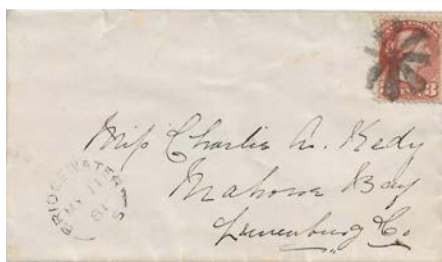 3
Miss Charlie A. Kedy
Mahone Bay
Lunenburg Co
BRIDGEWATER N.S
MY 11
81